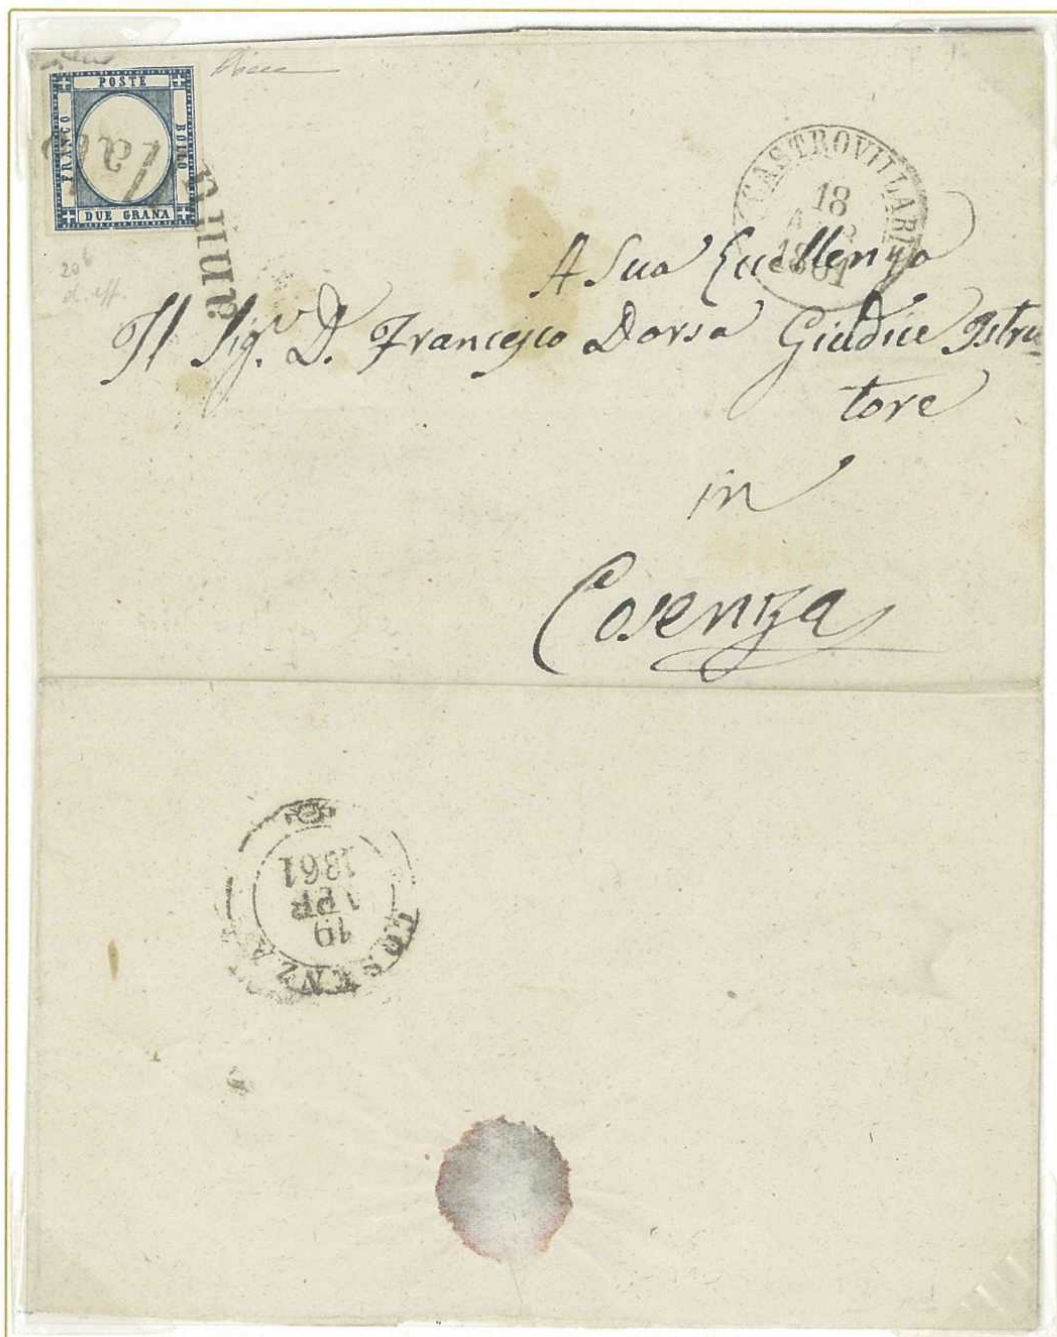 POSTE
FRANCO
BOLLO
DUE GRANA
annul
CASTROVILLARI
18
APR
1861
A Sua Eccellenza
Il Sig.r D. Francesco Dorsa Giudice Istru=
tore
in
Cosenza
20b
d. eff.
COSENZA
19
APR
1861